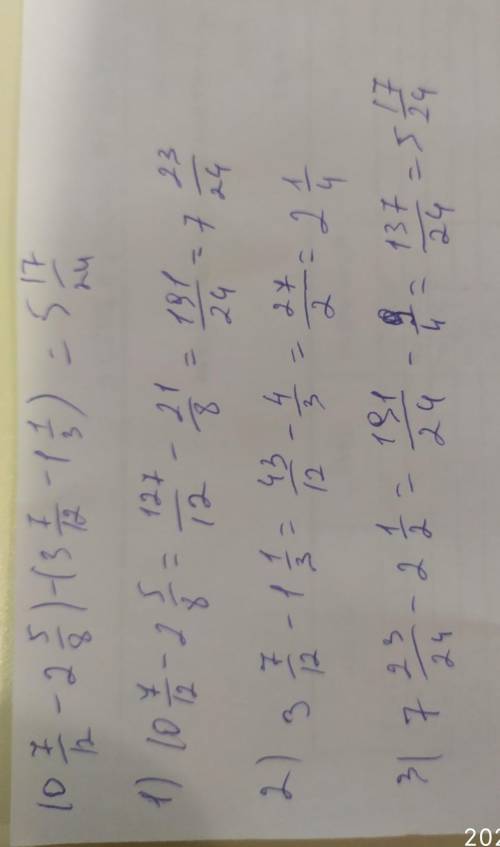 10 7/12 - 2 5/8) - (3 7/12 - 1 1/3) = 5 17/24
1) 10 7/12 - 2 5/8 = 127/12 - 21/8 = 191/24 = 7 23/24
2) 3 7/12 - 1 1/3 = 43/12 - 4/3 = 27/2 = 2 1/4
3) 7 23/24 - 2 1/2 = 191/24 - 9/4 = 137/24 = 5 17/24
202